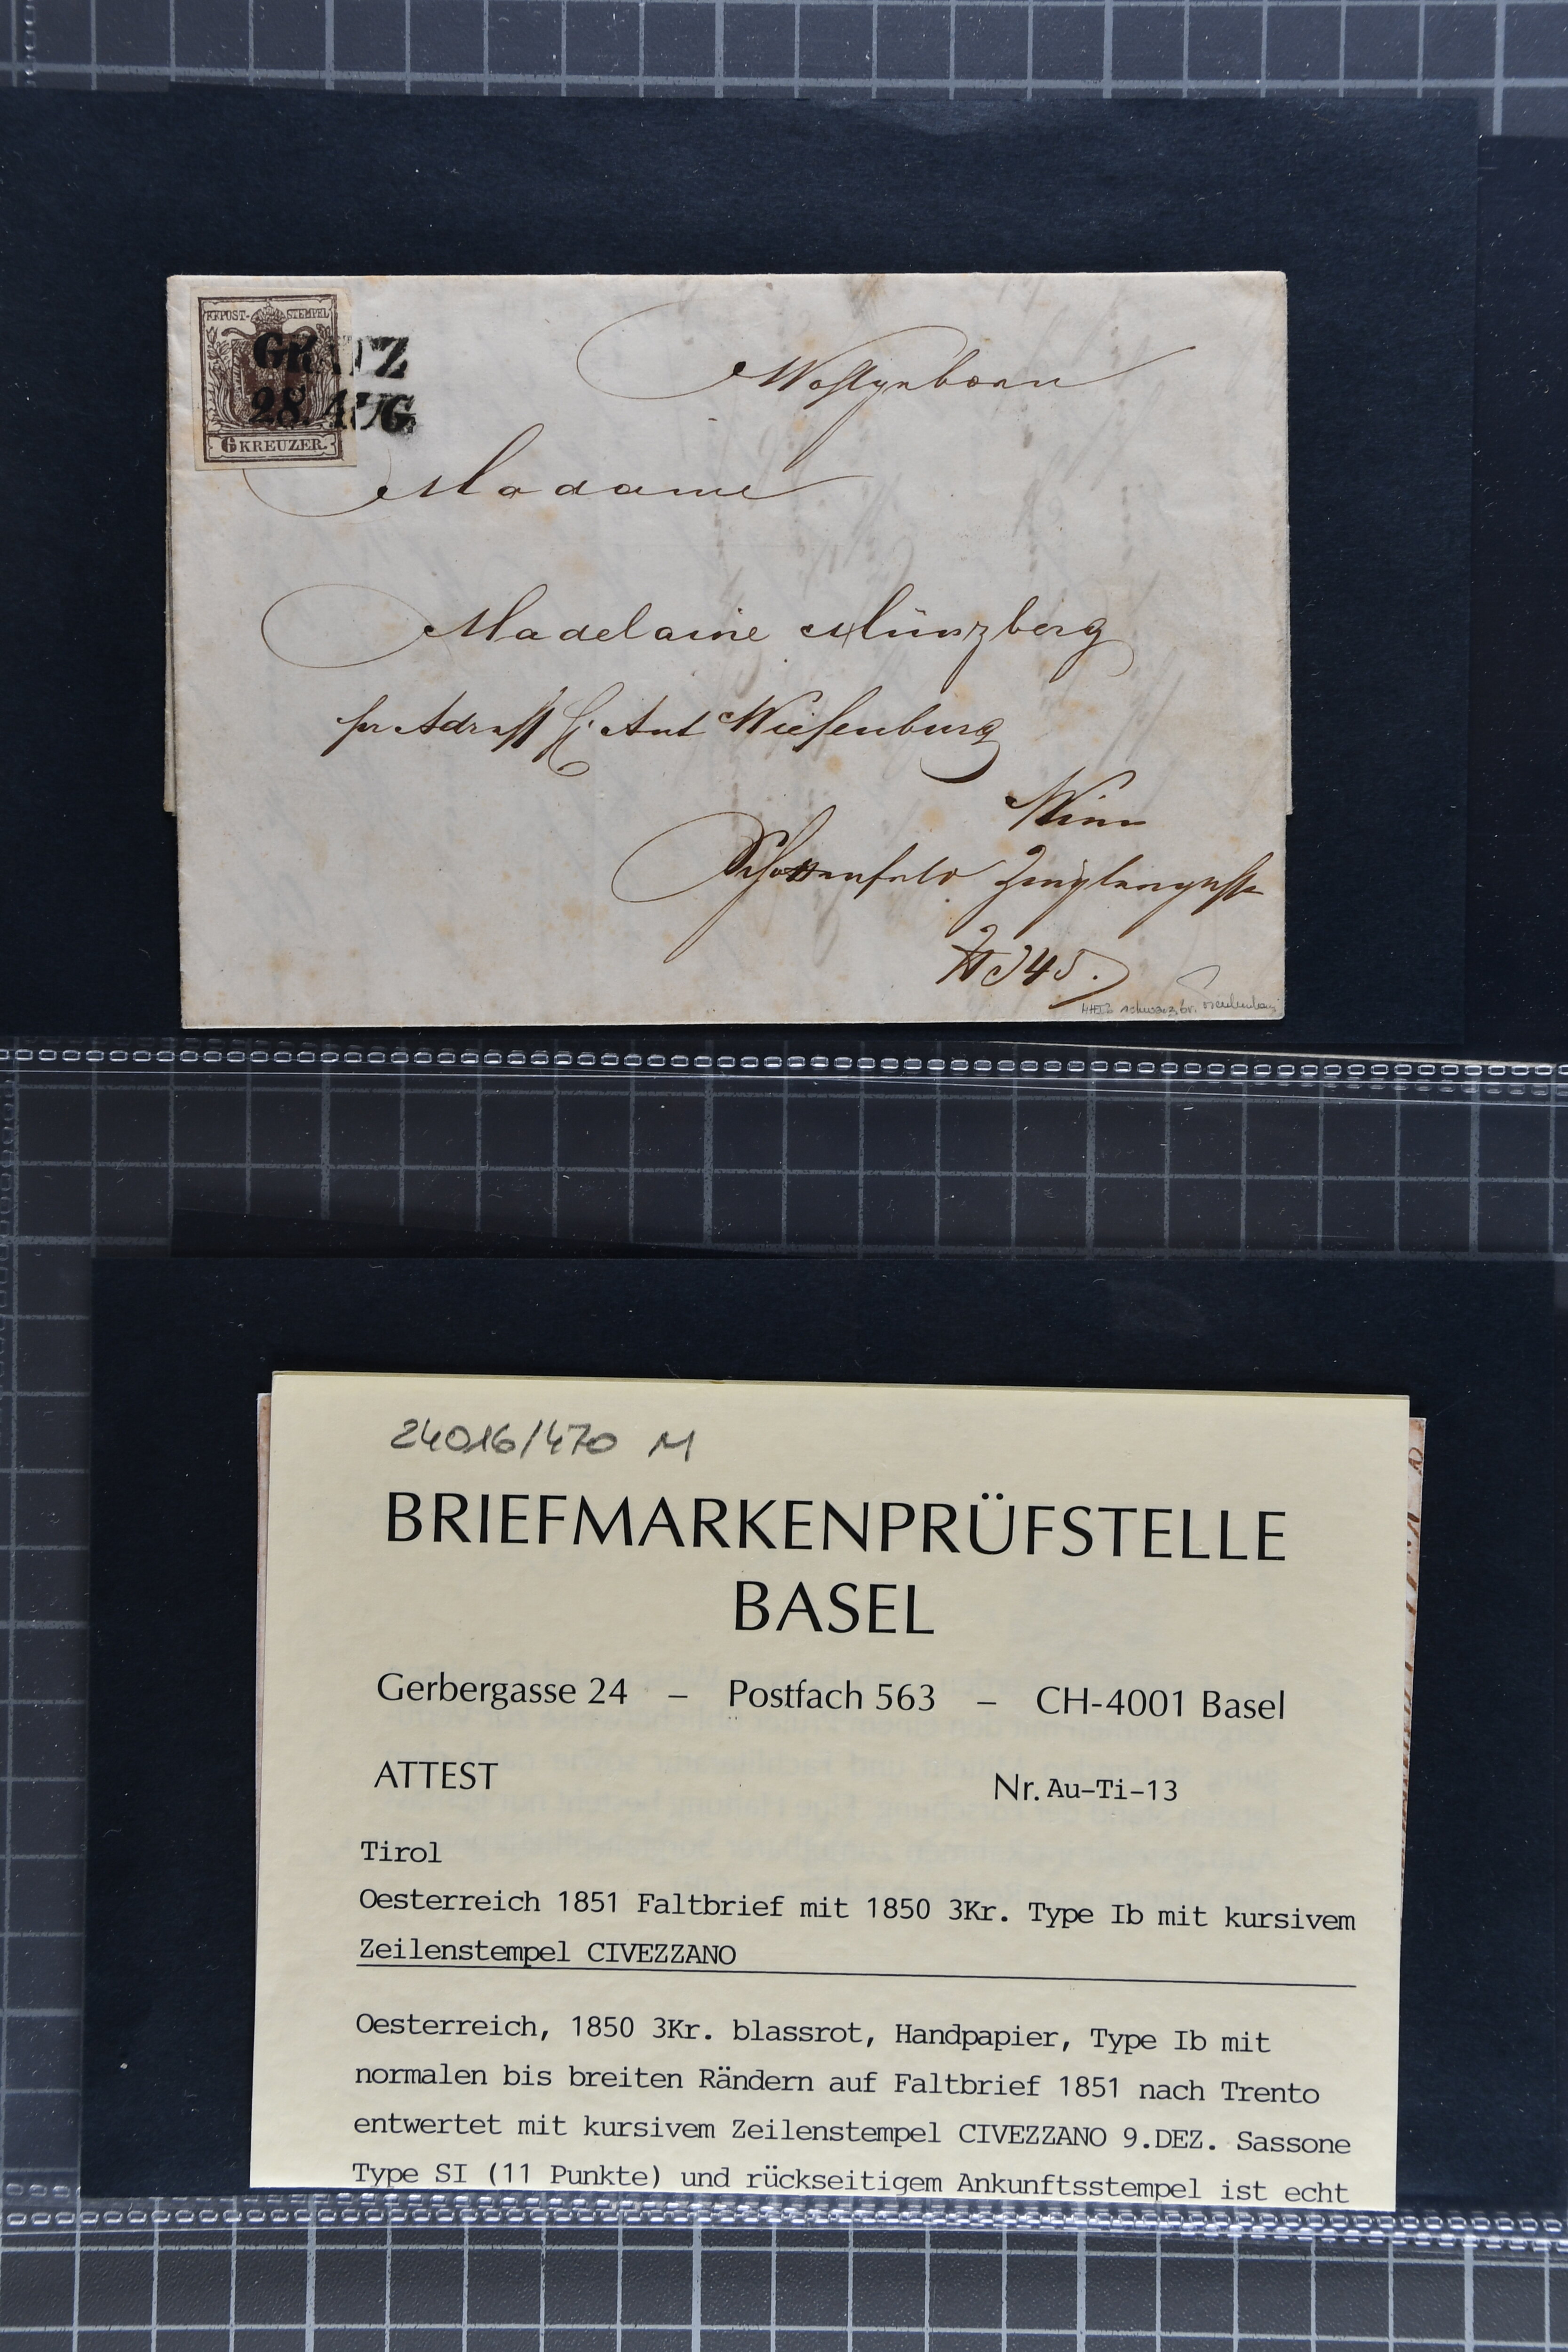 KKPOST-STEMPEL
GRATZ
28. AUG.
6 KREUZER.
Wohlgeborn
Madame
Madelaine Münzberg
pr Adress H. Ant Wiesenburg
Wien
Schottenfeld Zieglergasse
№ 345.
schwarzbr.
24016/470 M
BRIEFMARKENPRÜFSTELLE
BASEL
Gerbergasse 24 – Postfach 563 – CH-4001 Basel
ATTEST Nr. Au-Ti-13
Tirol
Oesterreich 1851 Faltbrief mit 1850 3Kr. Type Ib mit kursivem
Zeilenstempel CIVEZZANO
Oesterreich, 1850 3Kr. blassrot, Handpapier, Type Ib mit
normalen bis breiten Rändern auf Faltbrief 1851 nach Trento
entwertet mit kursivem Zeilenstempel CIVEZZANO 9.DEZ. Sassone
Type SI (11 Punkte) und rückseitigem Ankunftsstempel ist echt